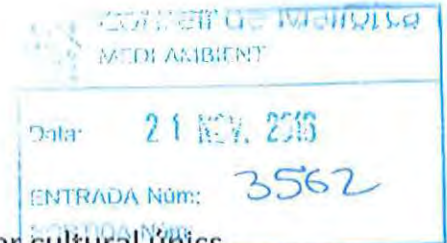 Consell de Mallorca
MEDI AMBIENT
Data: 21 NOV. 2016
ENTRADA Núm: 3562
SORTIDA Núm:
er cultural únics